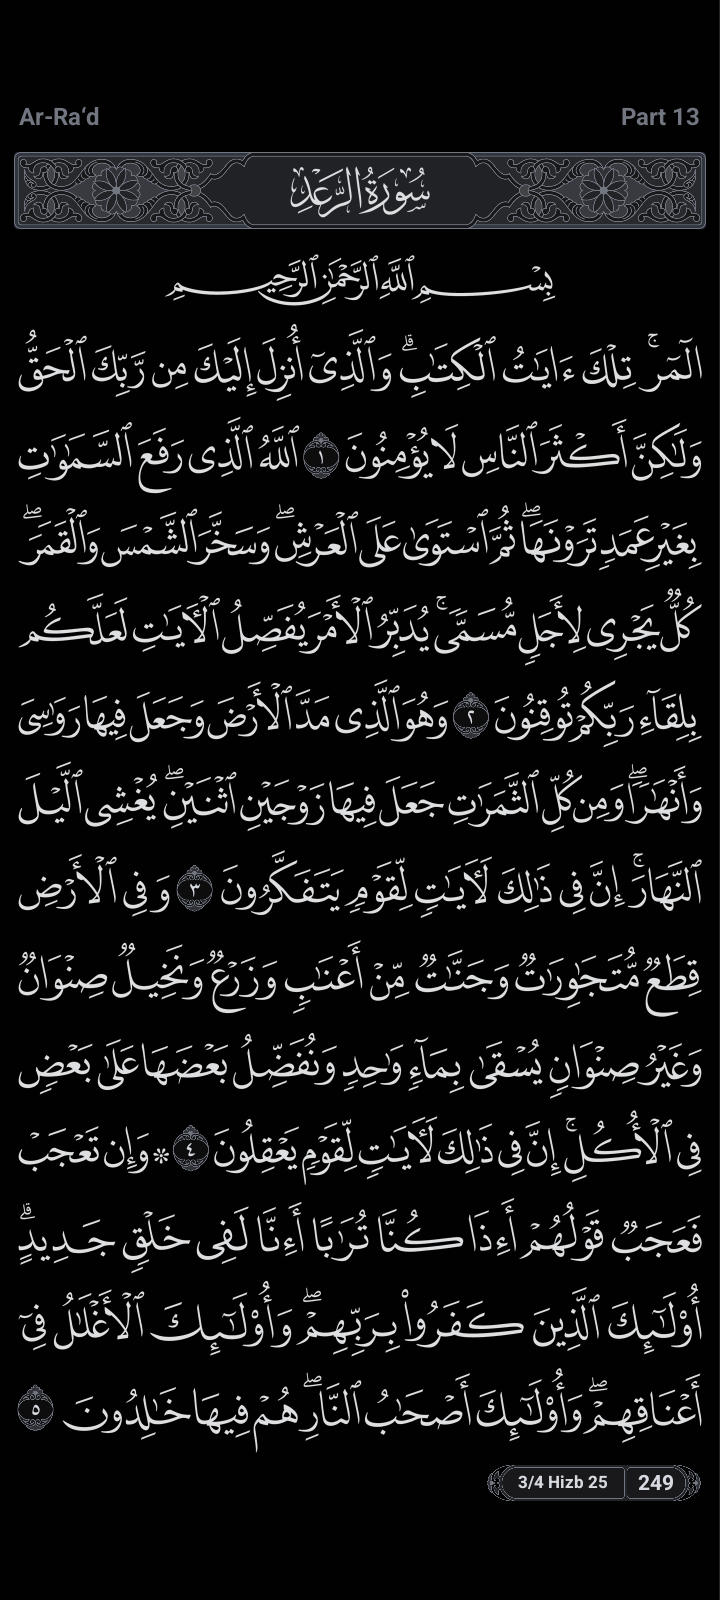 Ar-Ra‘d
Part 13
سُورَةُ الرَّعْدِ
بِسْمِ ٱللَّهِ ٱلرَّحْمَٰنِ ٱلرَّحِيمِ
الٓمٓر ۚ تِلْكَ ءَايَٰتُ ٱلْكِتَٰبِ ۗ وَٱلَّذِىٓ أُنزِلَ إِلَيْكَ مِن رَّبِّكَ ٱلْحَقُّ
وَلَٰكِنَّ أَكْثَرَ ٱلنَّاسِ لَا يُؤْمِنُونَ ١ ٱللَّهُ ٱلَّذِى رَفَعَ ٱلسَّمَٰوَٰتِ
بِغَيْرِ عَمَدٍ تَرَوْنَهَا ۖ ثُمَّ ٱسْتَوَىٰ عَلَى ٱلْعَرْشِ ۖ وَسَخَّرَ ٱلشَّمْسَ وَٱلْقَمَرَ ۖ
كُلٌّ يَجْرِى لِأَجَلٍ مُّسَمًّى ۚ يُدَبِّرُ ٱلْأَمْرَ يُفَصِّلُ ٱلْـَٔايَٰتِ لَعَلَّكُم
بِلِقَآءِ رَبِّكُمْ تُوقِنُونَ ٢ وَهُوَ ٱلَّذِى مَدَّ ٱلْأَرْضَ وَجَعَلَ فِيهَا رَوَٰسِىَ
وَأَنْهَٰرًا ۖ وَمِن كُلِّ ٱلثَّمَرَٰتِ جَعَلَ فِيهَا زَوْجَيْنِ ٱثْنَيْنِ ۖ يُغْشِى ٱلَّيْلَ
ٱلنَّهَارَ ۚ إِنَّ فِى ذَٰلِكَ لَـَٔايَٰتٍ لِّقَوْمٍ يَتَفَكَّرُونَ ٣ وَفِى ٱلْأَرْضِ
قِطَعٌ مُّتَجَٰوِرَٰتٌ وَجَنَّٰتٌ مِّنْ أَعْنَٰبٍ وَزَرْعٌ وَنَخِيلٌ صِنْوَانٌ
وَغَيْرُ صِنْوَانٍ يُسْقَىٰ بِمَآءٍ وَٰحِدٍ وَنُفَضِّلُ بَعْضَهَا عَلَىٰ بَعْضٍ
فِى ٱلْأُكُلِ ۚ إِنَّ فِى ذَٰلِكَ لَـَٔايَٰتٍ لِّقَوْمٍ يَعْقِلُونَ ٤ ۞ وَإِن تَعْجَبْ
فَعَجَبٌ قَوْلُهُمْ أَءِذَا كُنَّا تُرَٰبًا أَءِنَّا لَفِى خَلْقٍ جَدِيدٍ ۗ
أُو۟لَٰٓئِكَ ٱلَّذِينَ كَفَرُوا۟ بِرَبِّهِمْ ۖ وَأُو۟لَٰٓئِكَ ٱلْأَغْلَٰلُ فِىٓ
أَعْنَاقِهِمْ ۖ وَأُو۟لَٰٓئِكَ أَصْحَٰبُ ٱلنَّارِ ۖ هُمْ فِيهَا خَٰلِدُونَ ٥
3/4 Hizb 25
249